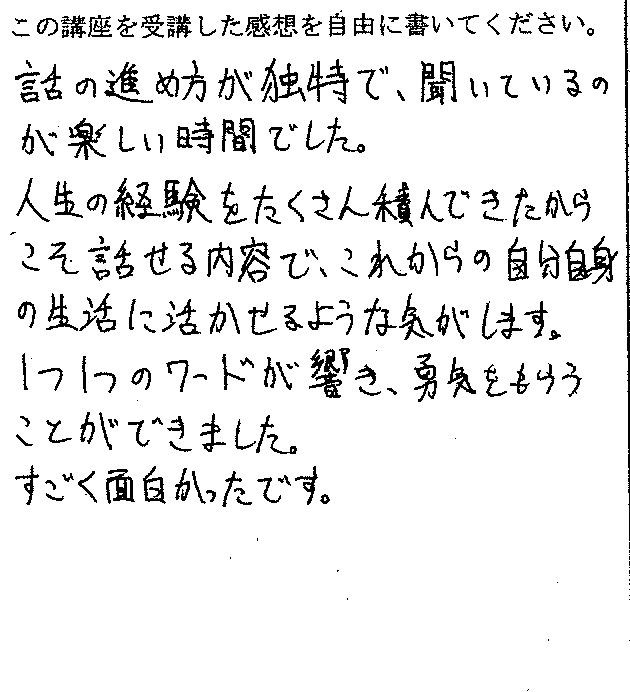 この講座を受講した感想を自由に書いてください。
話の進め方が独特で、聞いているの
が楽しい時間でした。
人生の経験をたくさん積んできたから
こそ話せる内容で、これからの自分自身
の生活に活かせるような気がします。
1つ1つのワードが響き、勇気をもらう
ことができました。
すごく面白かったです。